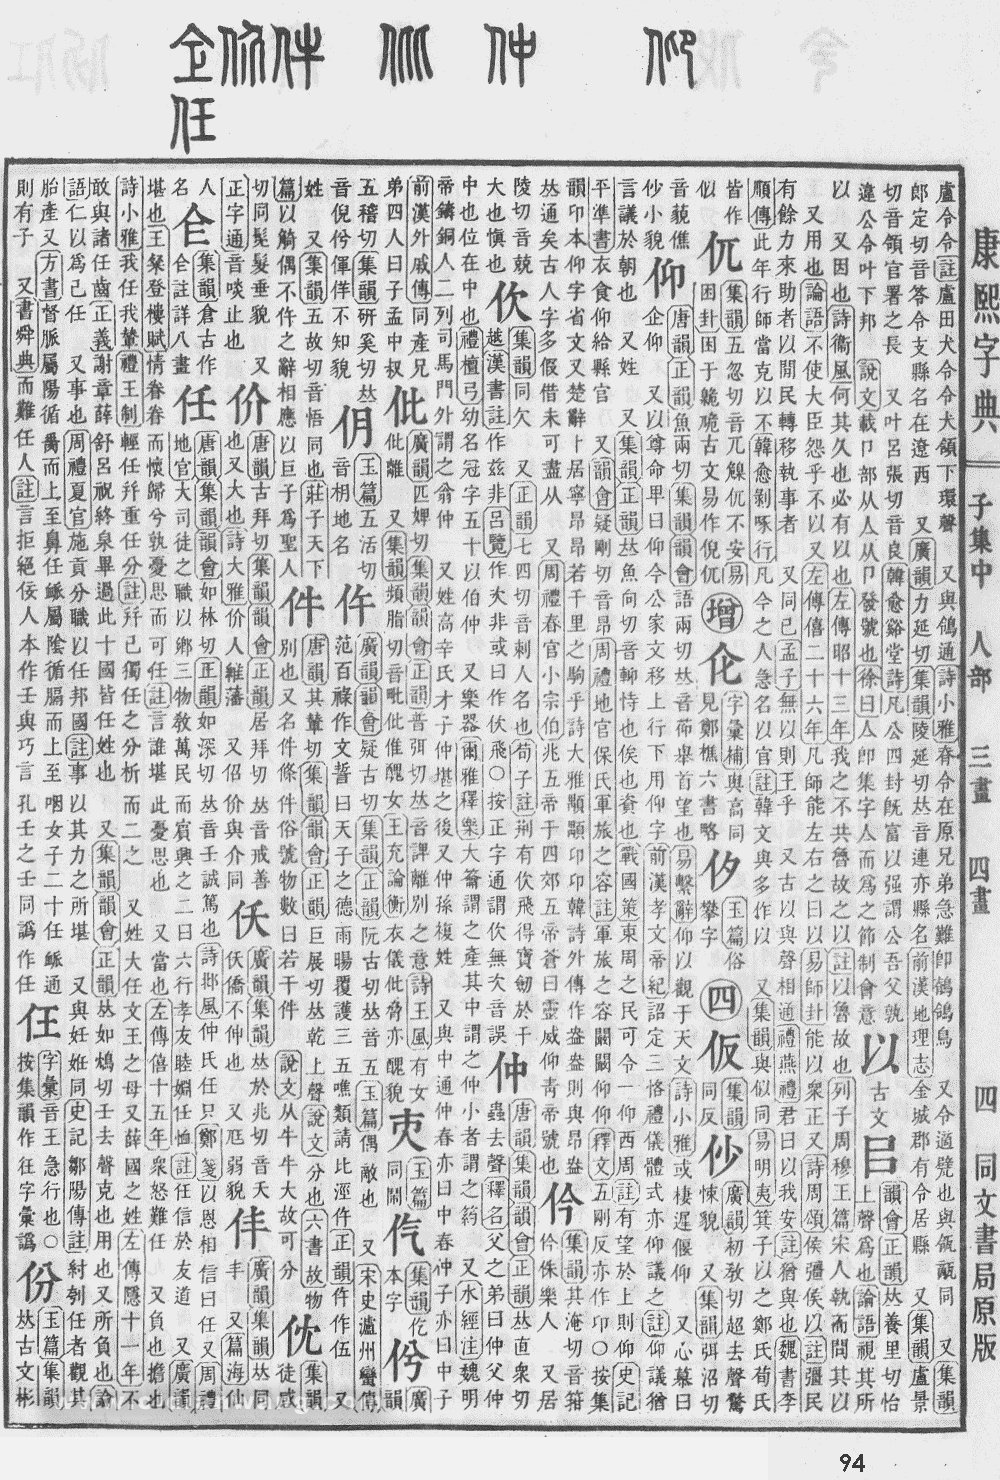 康熙字典
子集中 人部 三畫 四畫
四 同文書局原版
盧令令註盧田犬令令犬領下環聲 又與鴒通詩小雅脊令在原兄弟急難卽鴒鴒鳥 又令適甓也與瓴甋同 又集韻
郎定切音答令支縣名在遼西 又廣韻力延切集韻陵延切𠀤音連亦縣名前漢地理志金城郡有令居縣 又集韻盧景
切音領官署之長 又叶呂張切音良韓愈谿堂詩凡公四封旣富以强謂公吾父孰
違公令叶下邦 說文載卩部从人从卩發號也徐曰人卩集字人而爲之節制會意
以 古文㠯 韻會正韻𠀤養里切怡
上聲爲也論語視其所
以 又因也詩衞風何其久也必有以也左傳昭十三年我之不共魯故之以註以魯故也列子周穆王篇宋人執而問其以
又用也論語不使大臣怨乎不以 又左傳僖二十六年凡師能左右之曰以易師卦能以衆正又詩周頌侯彊侯以註彊民
有餘力來助者以閒民轉移執事者 又同已孟子無以則王乎 又古以與聲相通禮燕禮君曰以我安註猶與也魏書李
順傳此年行師當克以不韓愈剝啄行凡今之人急名以官註韓文與多作以 又集韻與似同易明夷箕子以之鄭氏荀氏
皆作
似
集韻五忽切音兀 不安易
困卦困于 古文易作
增
字彙補與高同
見鄭樵六書略
玉篇俗
攀字
四
仮 集韻
同反
仯 廣韻初敎切超去聲驚
悚貌 又集韻弭沼切
音藐僬
仯小貌
仰 唐韻正韻魚兩切集韻韻會語兩切𠀤音 舉首望也易繫辭仰以觀于天文詩小雅或棲遲偃仰 又心慕曰
企仰 又以尊命卑曰仰今公家文移上行下用仰字前漢孝文帝紀詔定三恪禮儀體式亦仰議之註仰議猶
言議於朝也 又姓 又集韻正韻𠀤魚向切音 恃也俟也資也戰國策東周之民可令一仰西周註有望於上則仰史記
平準書衣食仰給縣官 又韻會疑剛切音昂周禮地官保氏軍旅之容註軍旅之容闞仰仰釋文五剛反亦作卬〇按集
韻卬本仰字省文又楚辭卜居寧昂昂若千里之駒乎詩大雅顒顒卬卬韓詩外傳作盎盎則與昂盎
𠀤通矣古人字多假借未可盡从 又周禮春官小宗伯兆五帝于四郊五帝蒼曰靈威仰靑帝號也
仱 集韻其淹切音箝
仱侏樂人 又居
陵切音兢
大也愼也
佽 集韻同欠 又正韻七四切音刺人名也荀子註荆有佽飛得寶劒於干
越漢書註作茲非呂覽作 非或曰作伏飛〇按正字通謂佽無 音誤
仲 唐韻集韻韻會正韻𠀤直衆切
蟲去聲釋名父之弟曰仲父仲
中也位在中也禮檀弓幼名冠字五十以伯仲 又樂器爾雅釋樂大籥謂之產其中謂之仲小者謂之箹 又水經注魏明
帝鑄銅人二列司馬門外謂之翁仲 又姓高辛氏才子仲堪之後又仲孫複姓 又與中通仲春亦曰中春仲子亦曰中子
前漢外戚傳同產兄
弟四人曰子孟中叔
仳 廣韻匹婢切集韻韻會正韻普弭切𠀤音諀離別之意詩王風有女
仳離 又集韻頻脂切音毗仳倠醜女王充論衡衣儀仳脅亦醜貌
玉篇
同鬧
集韻仡
本字
㑙 廣韻
五稽切集韻硏奚切𠀤
音倪㑙僤徉不知貌
仴 玉篇五活切
音枂地名
仵 廣韻韻會疑古切集韻正韻阮古切𠀤音五玉篇偶敵也 又宋史瀘州蠻傳
范百祿作文誓曰天子之德雨暘覆護三五噍類請比涇仵正韻仵作伍 又
姓 又集韻五故切音悟同也莊子天下
篇以觭偶不仵之辭相應以巨子爲聖人
件 唐韻其輦切集韻韻會正韻巨展切𠀤乾上聲說文分也六書故物
別也又名件條件俗號物數曰若干件 說文从牛牛大故可分
忱 集韻
徒感
切同髧髮垂貌 又
正字通音啖止也
价 唐韻古拜切集韻韻會正韻居拜切𠀤音戒善
也又大也詩大雅价人維藩 又佋价與介同
仸 廣韻集韻𠀤於兆切音夭
仸僑不伸也 又尫弱貌
仹 廣韻集韻𠀤同
丰 又篇海仙
人
名
仝 集韻倉古作
仝註詳八畫
任 唐韻集韻韻會如林切正韻如深切𠀤音壬誠篤也詩邶風仲氏任只鄭箋以恩相信曰任又周禮
地官大司徒之職以鄕三物敎萬民而賓興之二曰六行孝友睦婣任恤註任信於友道 又廣韻
堪也王粲登樓賦情眷眷而懷歸兮孰憂思而可任註言誰堪此憂思也 又當也左傳僖十五年衆怒難任 又負也擔也
詩小雅我任我輦禮王制輕任幷重任分註幷己獨任之分析而二之 又姓大任文王之母又薛國之姓左傳隱十一年不
敢與諸任齒正義謝章薛舒呂祝終泉畢過此十國皆任姓也 又集韻韻會正韻𠀤如鴆切壬去聲克也用也又所負也論
語仁以爲己任 又事也周禮夏官施貢分職以任邦國註事以其力之所堪 又與妊姙同史記鄒陽傳註紂刳任者觀其
胎產又方書督脈屬陽循脊而上至鼻任脈屬陰循膈而上至咽女子二十任脈通
則有子 又書舜典而難任人註言拒絕佞人本作壬與巧言孔壬之壬同譌作任
字彙音王急行也〇
按集韻作往字彙譌
份 玉篇集韻
𠀤古文彬
94